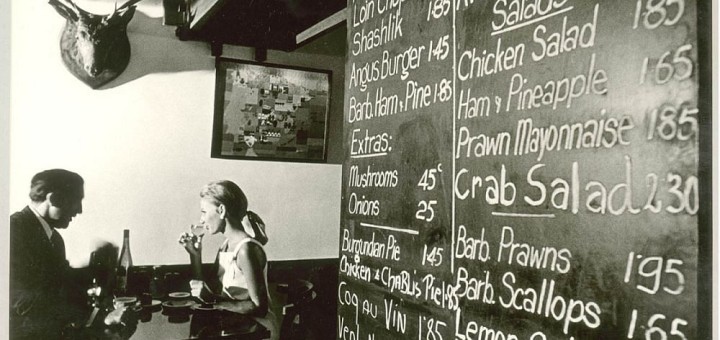 Loin Chop 1.85
Shashlik
Angus Burger 1.45
Barb. Ham & Pine 1.85
Extras:
Mushrooms 45c
Onions 25
Burgundian Pie 1.45
Chicken & Chablis Pie 1.85
Coq au Vin 1.85
Salads 1.85
Chicken Salad 1.65
Ham & Pineapple
Prawn Mayonnaise 1.85
Crab Salad 2.30
Barb. Prawns 1.95
Barb. Scallops 1.65
Lemon